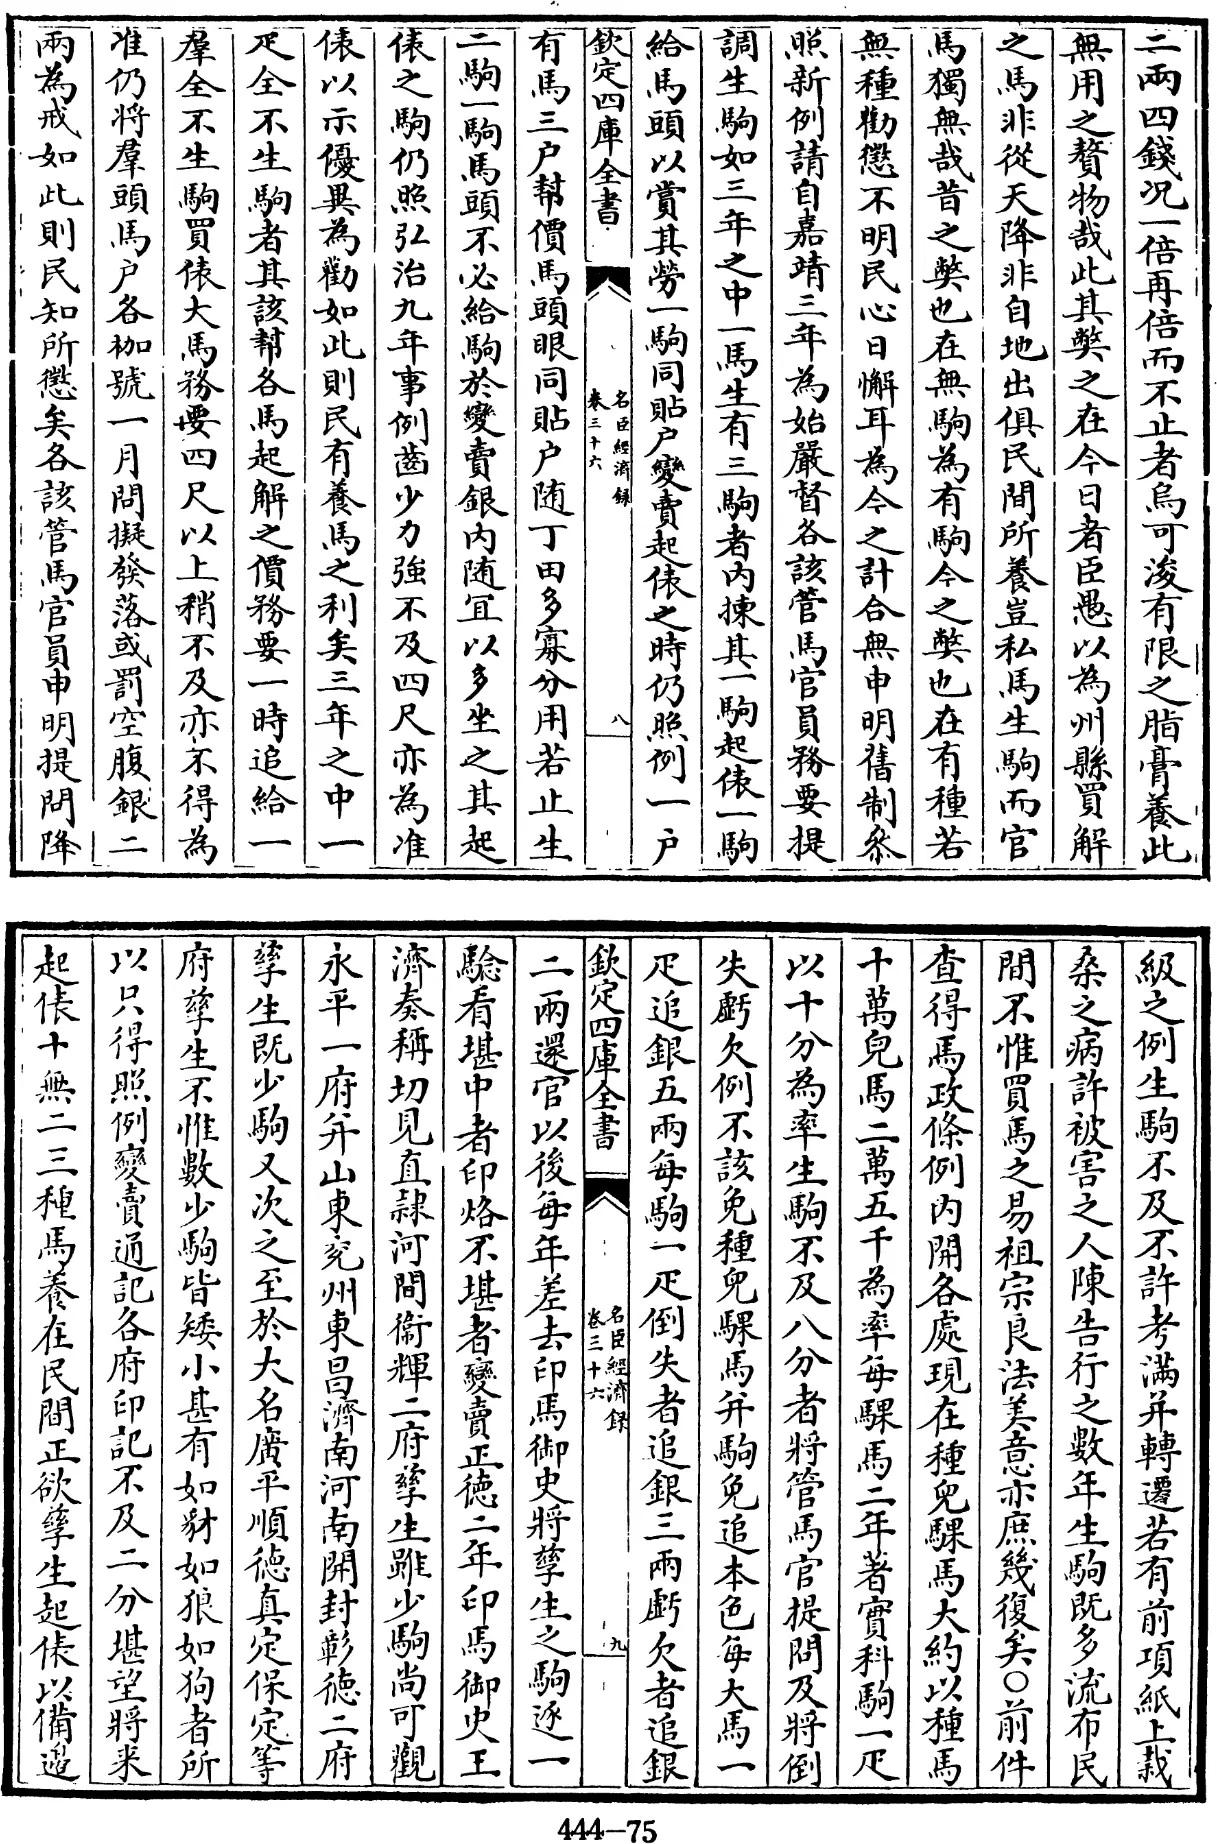 二兩四錢况一倍再倍而不止者烏可浚有限之脂膏養此
無用之贅物哉此其弊之在今日者臣愚以為州縣買解
之馬非從天降非自地出俱民間所養豈私馬生駒而官
馬獨無哉昔之弊也在無駒為有駒今之弊也在有種若
無種勸懲不明民心日懈耳為今之計合無申明舊制叅
照新例請自嘉靖三年為始嚴督各該管馬官員務要提
調生駒如三年之中一馬生有三駒者内揀其一駒起俵一駒
給馬頭以賞其勞一駒同貼户變賣起俵之時仍照例一户
欽定四庫全書
名臣經濟録
卷三十六
八
有馬三户幇價馬頭眼同貼户随丁田多寡分用若止生
二駒一駒馬頭不必給駒於變賣銀内随冝以多坐之其起
俵之駒仍照弘治九年事例齒少力強不及四尺亦為准
俵以示優異為勸如此則民有養馬之利矣三年之中一
疋全不生駒者其該幇各馬起解之價務要一時追給一
羣全不生駒買俵大馬務要四尺以上稍不及亦不得為
准仍將羣頭馬户各枷號一月問擬發落或罰空腹銀二
兩為戒如此則民知所懲矣各該管馬官員申明提問降
級之例生駒不及不許考滿并轉遷若有前項紙上栽
桑之病許被害之人陳告行之數年生駒既多流布民
間不惟買馬之易祖宗良法美意亦庶幾復矣○前件
查得馬政條例内開各處現在種兒騍馬大約以種馬
十萬兒馬二萬五千為率每騍馬二年著實科駒一疋
以十分為率生駒不及八分者將管馬官提問及將倒
失虧欠例不該免種兒騍馬并駒免追本色每大馬一
疋追銀五兩每駒一疋倒失者追銀三兩虧欠者追銀
欽定四庫全書
名臣經濟録
卷三十六
九
二兩還官以後每年差去印馬御史將孳生之駒逐一
驗看堪中者印烙不堪者變賣正德二年印馬御史王
濟奏稱切見直隷河間衞輝二府孳生雖少駒尚可觀
永平一府并山東兖州東昌濟南河南開封彰德二府
孳生既少駒又次之至於大名廣平順德真定保定等
府孳生不惟數少駒皆矮小甚有如豺如狼如狗者所
以只得照例變賣通記各府印記不及二分堪望將来
起俵十無二三種馬養在民間正欲孳生起俵以備邉
444-75